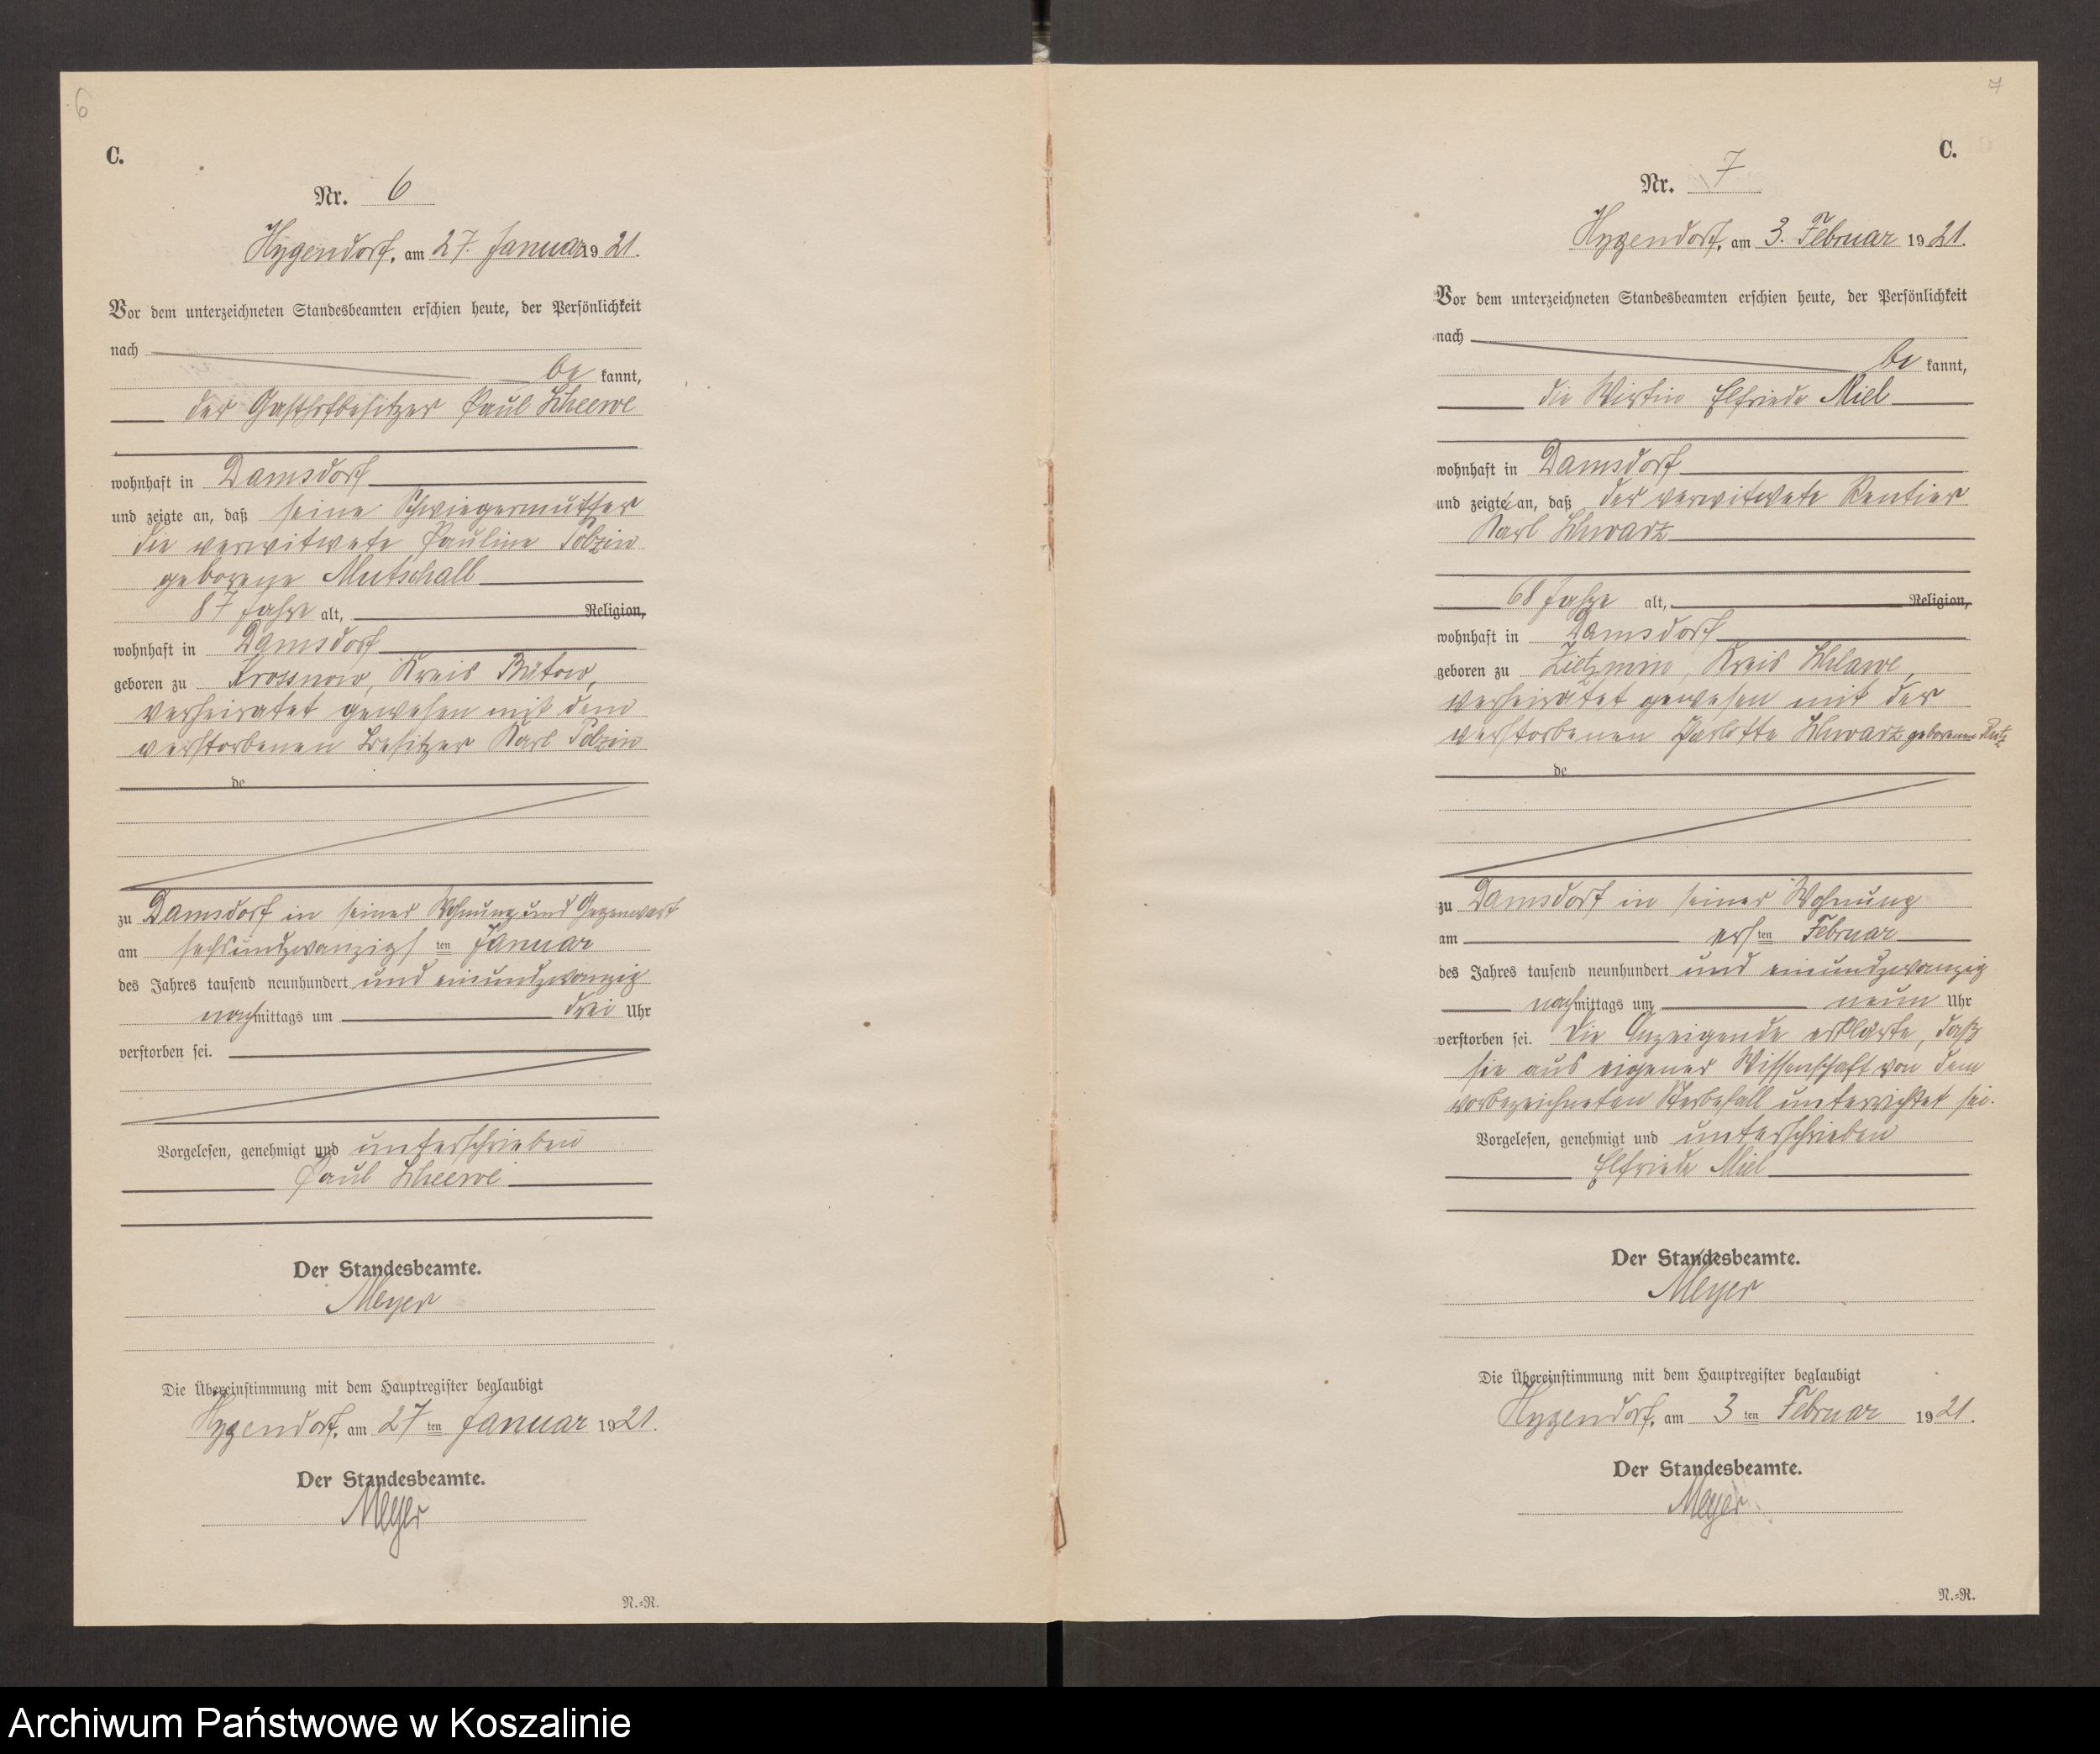 6
C.
Nr. 6
Hygendorf, am 27. Januar 1921.
Vor dem unterzeichneten Standesbeamten erschien heute, der Persönlichkeit
nach
be kannt,
der Gasthofbesitzer Paul Scheewe
wohnhaft in Damsdorf
und zeigte an, daß seine Schwiegermutter
die verwitwete Pauline Polzin
geborene Mutschall
87 Jahre alt, Religion,
wohnhaft in Damsdorf
geboren zu Krossnow, Kreis Bütow,
verheiratet gewesen mit dem
verstorbenen Besitzer Karl Polzin
de
zu Damsdorf in seiner Wohnung und Gegenwart
am sechsundzwanzigs ten Januar
des Jahres tausend neunhundert und einundzwanzig
nachmittags um drei Uhr
verstorben sei.
Vorgelesen, genehmigt und unterschrieben
Paul Scheewe
Der Standesbeamte.
Meyer
Die Übereinstimmung mit dem Hauptregister beglaubigt
Hygendorf, am 27ten Januar 1921.
Der Standesbeamte.
Meyer
N.=R.
7
C.
Nr. 7
Hygendorf, am 3. Februar 1921.
Vor dem unterzeichneten Standesbeamten erschien heute, der Persönlichkeit
nach
be kannt,
die Wirtin Elfriede Miel
wohnhaft in Damsdorf
und zeigte an, daß der verwitwete Rentier
Karl Schwarz
68 Jahre alt, Religion,
wohnhaft in Damsdorf
geboren zu Zietzmin, Kreis Schlawe,
verheiratet gewesen mit der
verstorbenen Scharlotte Schwarz geborenen
de
zu Damsdorf in seiner Wohnung
am ers ten Februar
des Jahres tausend neunhundert und einundzwanzig
nachmittags um neun Uhr
verstorben sei. Die Anzeigende erklärte, daß
sie aus eigener Wissenschaft von dem
vorbezeichneten Sterbefall unterrichtet sei.
Vorgelesen, genehmigt und unterschrieben
Elfriede Miel
Der Standesbeamte.
Meyer
Die Übereinstimmung mit dem Hauptregister beglaubigt
Hygendorf, am 3 ten Februar 1921.
Der Standesbeamte.
Meyer
N.=R.
Archiwum Państwowe w Koszalinie